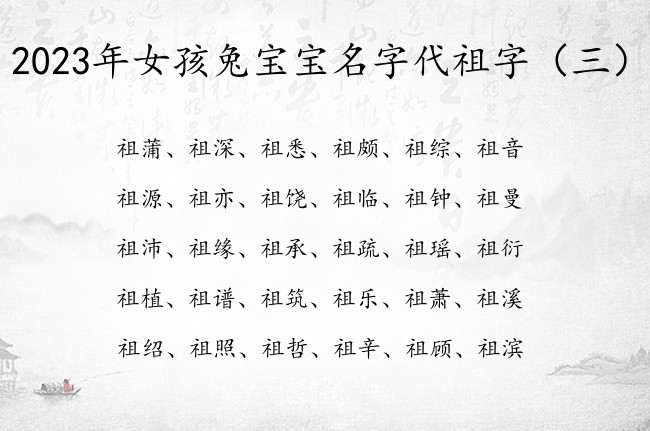 2023年女孩兔宝宝名字代祖字（三）
祖蒲、祖深、祖悉、祖颇、祖综、祖音
祖源、祖亦、祖饶、祖临、祖钟、祖曼
祖沛、祖缘、祖承、祖疏、祖瑶、祖衍
祖植、祖谱、祖筑、祖乐、祖萧、祖溪
祖绍、祖照、祖哲、祖辛、祖顾、祖滨